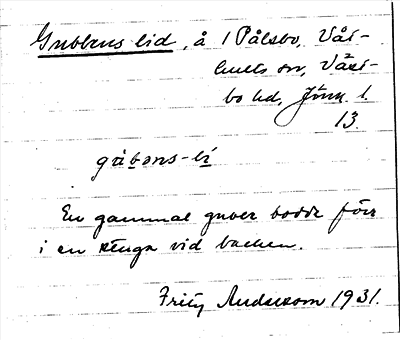 Gubbens lid, å 1 Pålsbo, Vår-
kulls sn, Väst-
bo hd, Jönk. l.
13.
gúbəns-lí
En gammal guber bodde förr
i en stuga vid backen.
Fritz Andersson 1931.